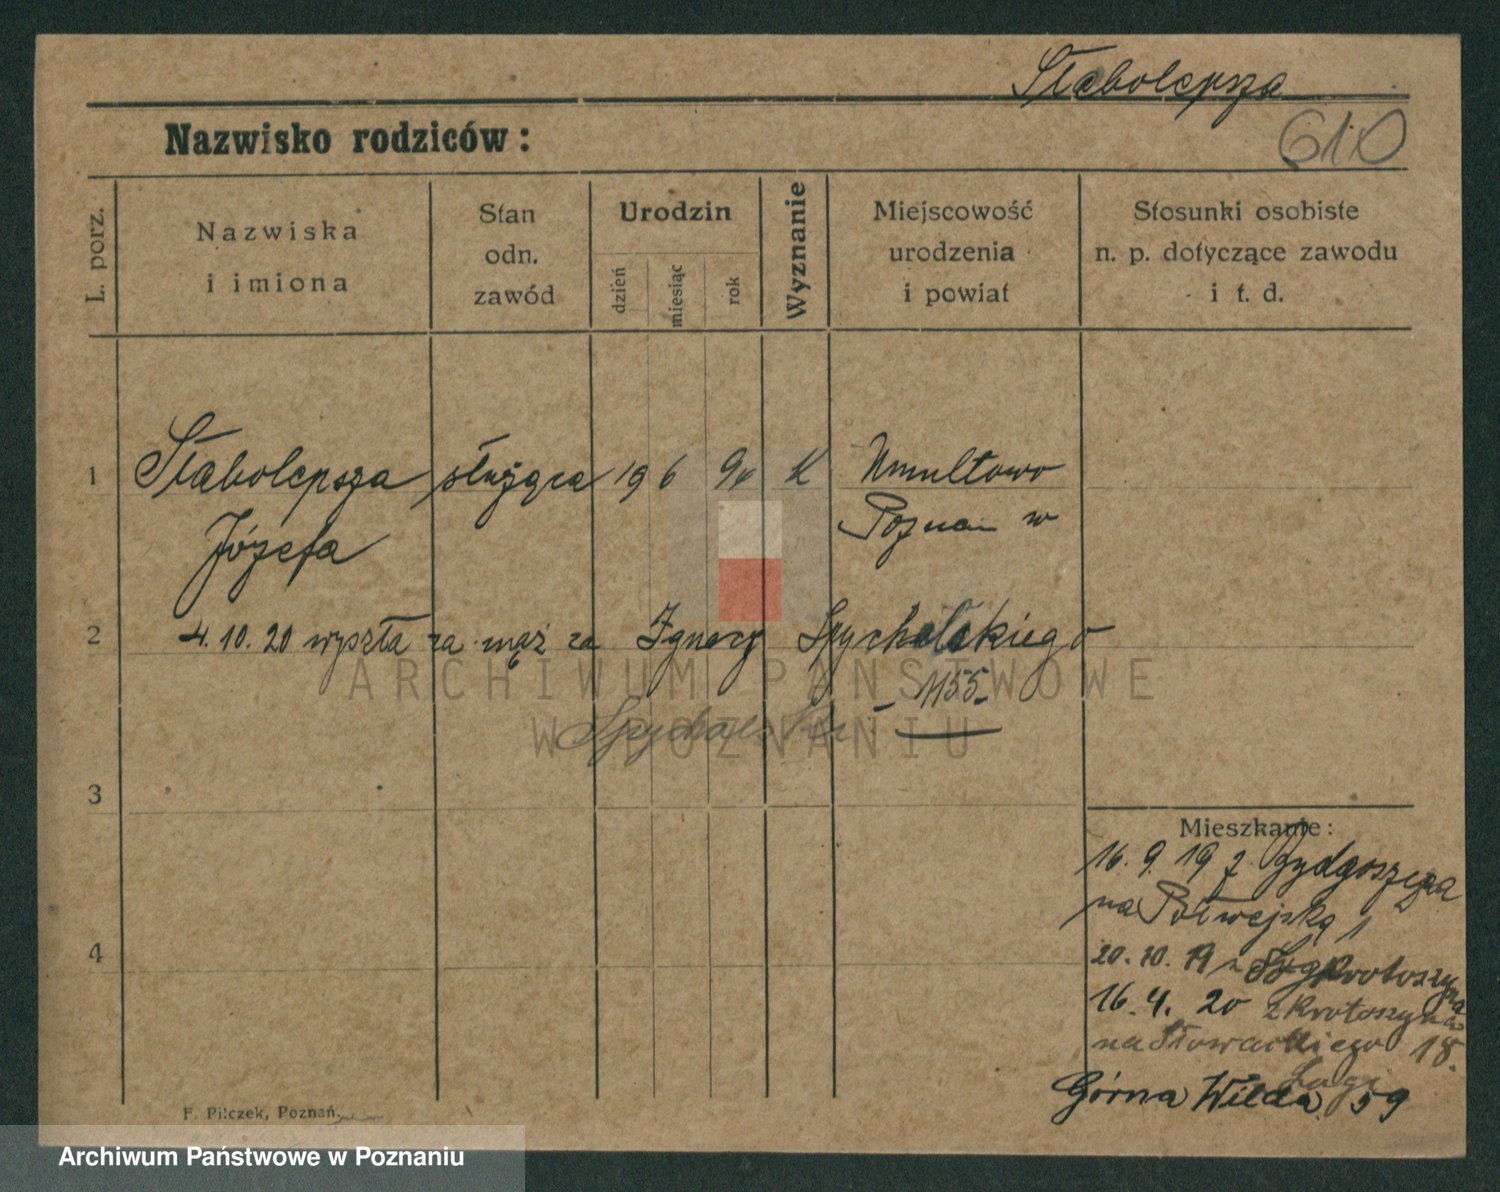 Słabolepsza
610
Nazwisko rodziców:
L. porz.
Nazwiska
i imiona
Stan
odn.
zawód
Urodzin
dzień
miesiąc
rok
Wyznanie
Miejscowość
urodzenia
i powiat
Stosunki osobiste
n. p. dotyczące zawodu
i t. d.
1 Słabolepsza służąca 19 6 94 K Umultowo
Józefa Poznań w
2 4.10.20 wyszła za mąż za Ignacy Spychalskiego
- 1155 -
Spychalska
3
Mieszkanie:
16. 9. 19 z Bydgoszcza
na Półwejską 1
4 20. 10. 19 z Krotoszyna
16. 4. 20 z Krotoszyna
na Słowackiego 18.
Górna Wilda 59
F. Pilczek, Poznań.
ARCHIWUM PAŃSTWOWE
W POZNANIU
Archiwum Państwowe w Poznaniu